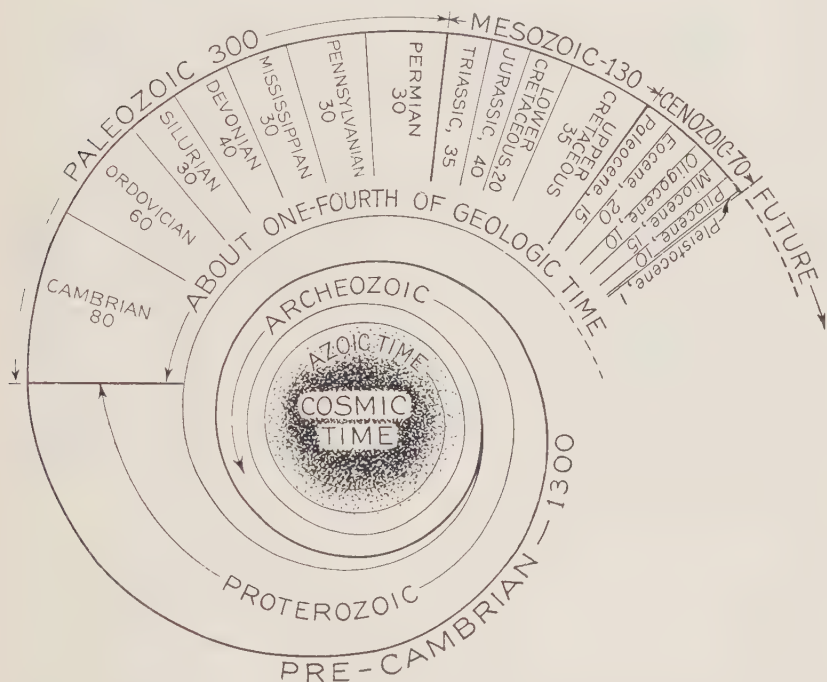 PALEOZOIC 300
MESOZOIC-130
CENOZOIC 70
FUTURE
CAMBRIAN
80
ORDOVICIAN
60
SILURIAN
30
DEVONIAN
40
MISSISSIPPIAN
30
PENNSYLVANIAN
30
PERMIAN
30
TRIASSIC, 35
JURASSIC, 40
LOWER
CRETACEOUS, 20
UPPER
CRETACEOUS
35
Paleocene, 15
Eocene, 20
Oligocene, 10
Miocene, 15
Pliocene, 10
Pleistocene, 1
ABOUT ONE-FOURTH OF GEOLOGIC TIME
ARCHEOZOIC
AZOIC TIME
COSMIC
TIME
PROTEROZOIC
PRE-CAMBRIAN — 1300